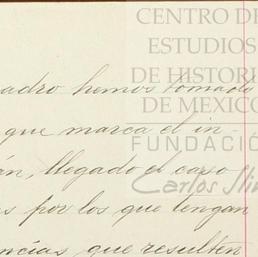 CENTRO DE
ESTUDIOS
DE HISTORIA
DE MEXICO
FUNDACIÓ
Carlos Sli
adro hemos tomado
que marca el in
án, llegado el caso
s por los que tengan
ncias que resulten